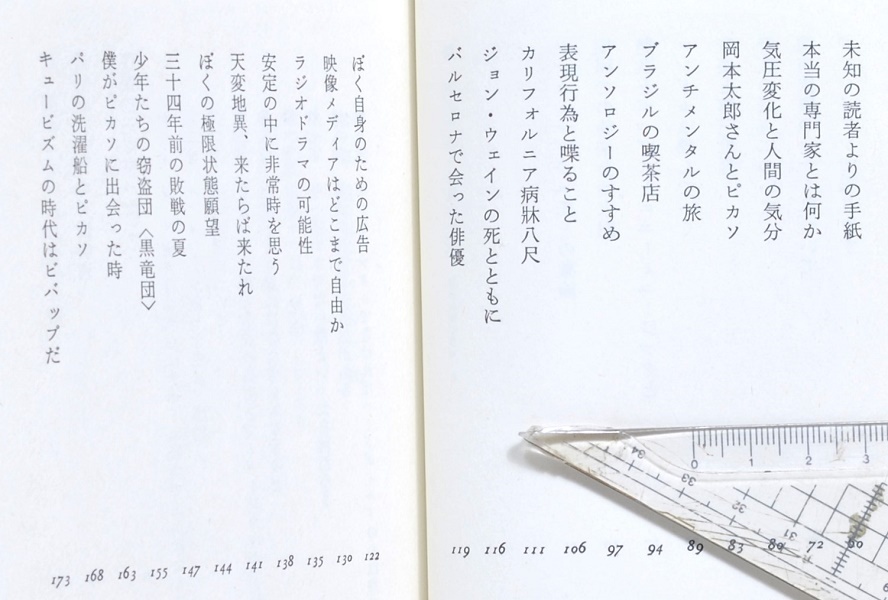 未知の読者よりの手紙 60
本当の専門家とは何か 72
気圧変化と人間の気分 80
岡本太郎さんとピカソ 83
アンチメンタルの旅 89
ブラジルの喫茶店 94
アンソロジーのすすめ 97
表現行為と喋ること 106
カリフォルニア病牀八尺 111
ジョン・ウェインの死とともに 116
バルセロナで会った俳優 119
ぼく自身のための広告 122
映像メディアはどこまで自由か 130
ラジオドラマの可能性 135
安定の中に非常時を思う 138
天変地異、来たらば来たれ 141
ぼくの極限状態願望 144
三十四年前の敗戦の夏 147
少年たちの窃盗団〈黒竜団〉 155
僕がピカソに出会った時 163
パリの洗濯船とピカソ 168
キュービズムの時代はビバップだ 173
0 1 2 3
34 33 32 31